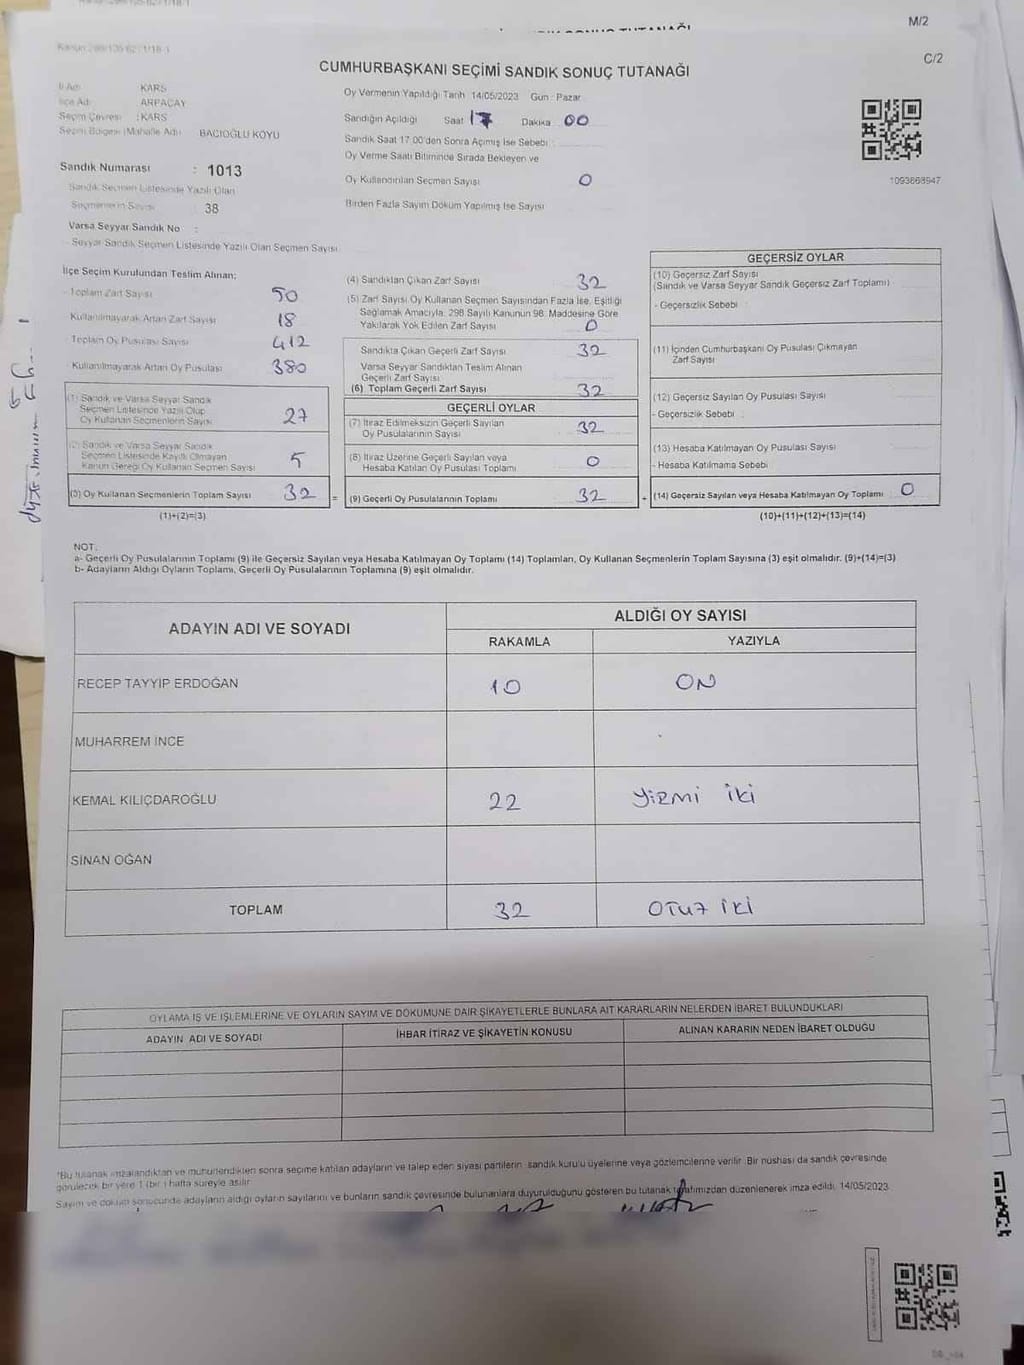 M/2
C/2
CUMHURBAŞKANI SEÇİMİ SANDIK SONUÇ TUTANAĞI
İl Adı : KARS
İlçe Adı : ARPAÇAY
Seçim Çevresi : KARS
Seçim Bölgesi (Mahalle Adı) BACIOĞLU KOYU
Sandık Numarası : 1013
Sandık Seçmen Listesinde Yazılı Olan
Seçmenlerin Sayısı : 38
Varsa Seyyar Sandık No :
- Seyyar Sandık Seçmen Listesinde Yazılı Olan Seçmen Sayısı
Oy Vermenin Yapıldığı Tarih 14/05/2023 Gün : Pazar
Sandığın Açıldığı Saat 17 Dakika 00
Sandık Saat 17:00'den Sonra Açımış İse Sebebi :
Oy Verme Saati Bitiminde Sırada Bekleyen ve
Oy Kullandırılan Seçmen Sayısı 0
Birden Fazla Sayım Döküm Yapılmış İse Sayısı
1093668947
İlçe Seçim Kurulundan Teslim Alınan;
- Toplam Zarf Sayısı 50
Kullanılmayarak Artan Zarf Sayısı 18
- Toplam Oy Pusulası Sayısı 412
Kullanılmayarak Artan Oy Pusulası 380
(1) Sandık ve Varsa Seyyar Sandık
Seçmen Listesinde Yazılı Olup
Oy Kullanan Seçmenlerin Sayısı 27
(2) Sandık ve Varsa Seyyar Sandık
Seçmen Listesinde Kayıtlı Olmayan
Kanun Gereği Oy Kullanan Seçmen Sayısı 5
(3) Oy Kullanan Seçmenlerin Toplam Sayısı 32 =
(1)+(2)=(3)
(4) Sandıktan Çıkan Zarf Sayısı 32
(5) Zarf Sayısı Oy Kullanan Seçmen Sayısından Fazla İse, Eşitliği
Sağlamak Amacıyla; 298 Sayılı Kanunun 98. Maddesine Göre
Yakılarak Yok Edilen Zarf Sayısı 0
Sandıkta Çıkan Geçerli Zarf Sayısı 32
Varsa Seyyar Sandıktan Teslim Alınan
Geçerli Zarf Sayısı
(6) Toplam Geçerli Zarf Sayısı 32
GEÇERLİ OYLAR
(7) İtiraz Edilmeksizin Geçerli Sayılan
Oy Pusulalarının Sayısı 32
(8) İtiraz Üzerine Geçerli Sayılan veya
Hesaba Katılan Oy Pusulası Toplamı 0
(9) Geçerli Oy Pusulalarının Toplamı 32 +
GEÇERSİZ OYLAR
(10) Geçersiz Zarf Sayısı
(Sandık ve Varsa Seyyar Sandık Geçersiz Zarf Toplamı)
- Geçersizlik Sebebi
(11) İçinden Cumhurbaşkanı Oy Pusulası Çıkmayan
Zarf Sayısı
(12) Geçersiz Sayılan Oy Pusulası Sayısı
- Geçersizlik Sebebi
(13) Hesaba Katılmayan Oy Pusulası Sayısı
- Hesaba Katılmama Sebebi
(14) Geçersiz Sayılan veya Hesaba Katılmayan Oy Toplamı 0
(10)+(11)+(12)+(13)=(14)
NOT:
a- Geçerli Oy Pusulalarının Toplamı (9) ile Geçersiz Sayılan veya Hesaba Katılmayan Oy Toplamı (14) Toplamları, Oy Kullanan Seçmenlerin Toplam Sayısına (3) eşit olmalıdır. (9)+(14)=(3)
b- Adayların Aldığı Oyların Toplamı, Geçerli Oy Pusulalarının Toplamına (9) eşit olmalıdır.
ADAYIN ADI VE SOYADI ALDIĞI OY SAYISI
RAKAMLA YAZIYLA
RECEP TAYYİP ERDOĞAN 10 ON
MUHARREM İNCE
KEMAL KILIÇDAROĞLU 22 Yirmi iki
SİNAN OĞAN
TOPLAM 32 OTUZ İKİ
OYLAMA İŞ VE İŞLEMLERİNE VE OYLARIN SAYIM VE DÖKÜMÜNE DAİR ŞİKAYETLERLE BUNLARA AİT KARARLARIN NELERDEN İBARET BULUNDUKLARI
ADAYIN ADI VE SOYADI İHBAR İTİRAZ VE ŞİKAYETİN KONUSU ALINAN KARARIN NEDEN İBARET OLDUĞU
*Bu tutanak imzalandıktan ve mühürlendikten sonra seçime katılan adayların ve talep eden siyasi partilerin sandık kurulu üyelerine veya gözlemcilerine verilir. Bir nüshası da sandık çevresinde
görülecek bir yere 1 (bir) hafta süreyle asılır.
Sayım ve döküm sonucunda adayların aldığı oyların sayılarını ve bunların sandık çevresinde bulunanlara duyurulduğunu gösteren bu tutanak tarafımızdan düzenlenerek imza edildi. 14/05/2023